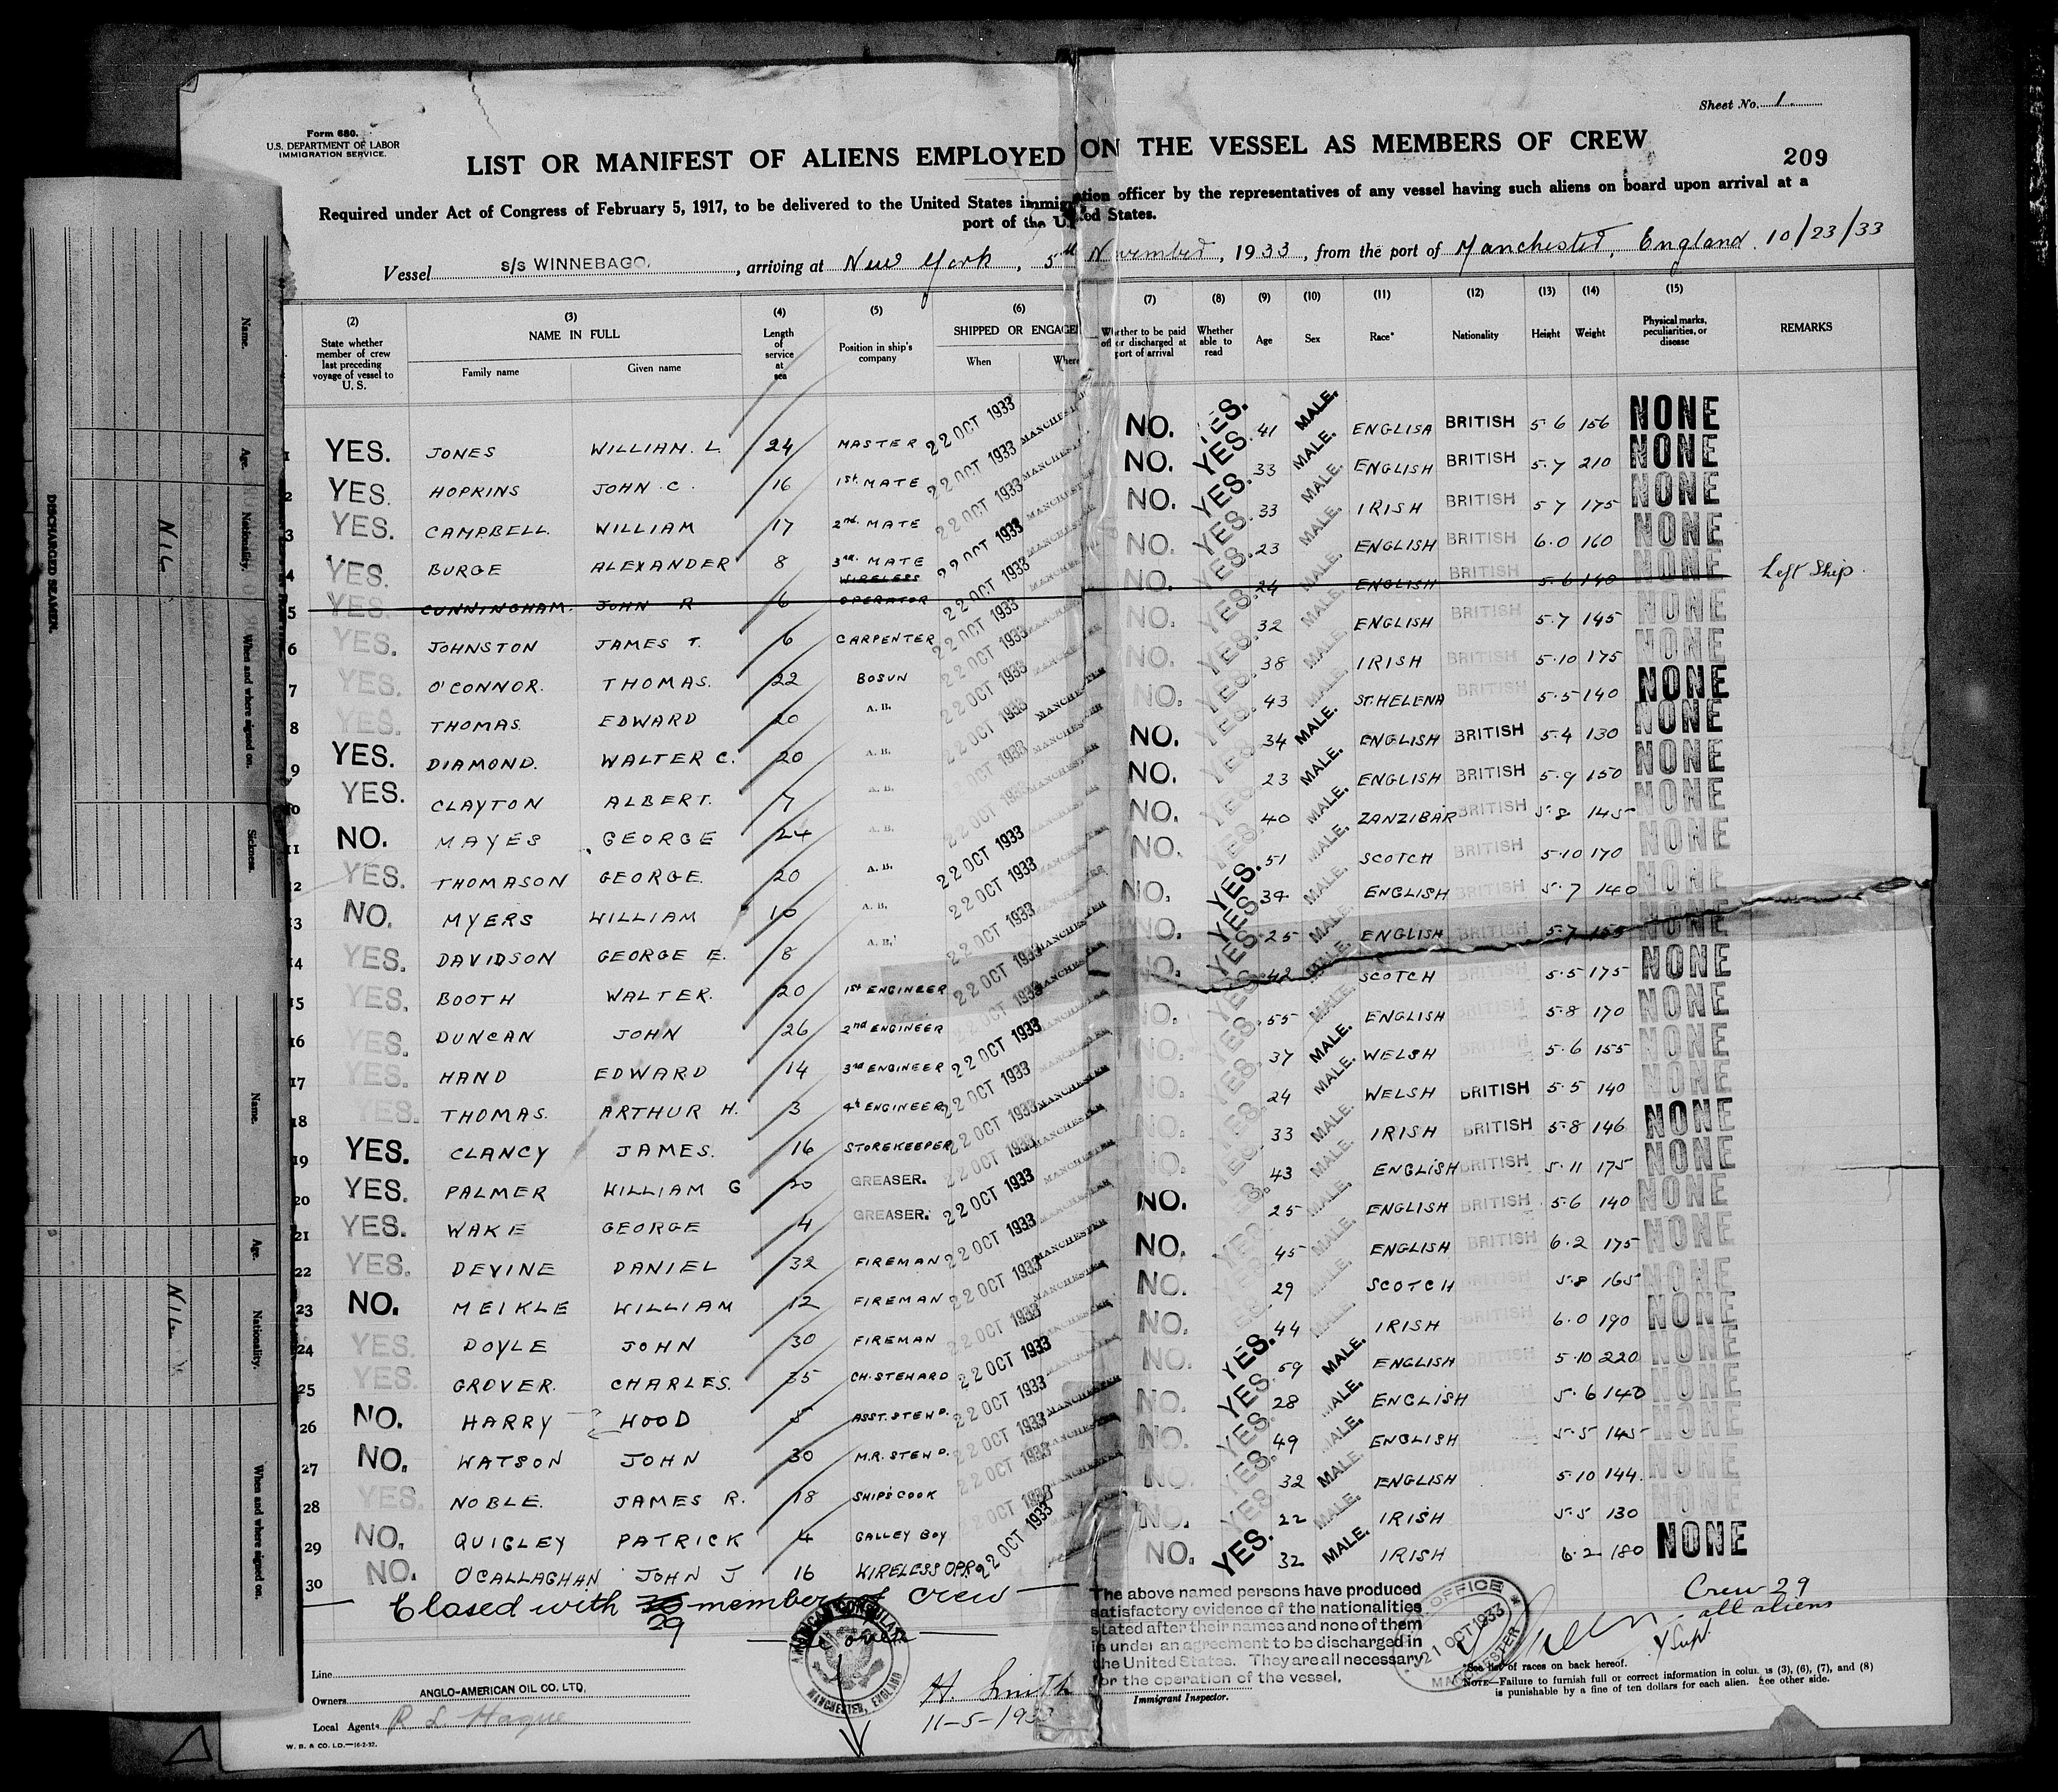 Sheet No. 1.
Form 680.
U.S. DEPARTMENT OF LABOR
IMMIGRATION SERVICE.
LIST OR MANIFEST OF ALIENS EMPLOYED ON THE VESSEL AS MEMBERS OF CREW
209
Required under Act of Congress of February 5, 1917, to be delivered to the United States immigration officer by the representatives of any vessel having such aliens on board upon arrival at a
port of the United States.
Vessel s/s WINNEBAGO. , arriving at New York , 5th November , 1933 , from the port of Manchester, England. 10/23/33
(2) (3) (4) (5) (6) (7) (8) (9) (10) (11) (12) (13) (14) (15)
State whether member of crew last preceding voyage of vessel to U. S. NAME IN FULL Family name Given name Length of service at sea Position in ship's company SHIPPED OR ENGAGED When Where Whether to be paid off or discharged at port of arrival Whether able to read Age Sex Race* Nationality Height Weight Physical marks, peculiarities, or disease REMARKS
1 YES. JONES WILLIAM. L. 24 MASTER 22 OCT 1933 MANCHESTER NO. YES. 41 MALE. ENGLISH BRITISH 5·6 156 NONE
2 YES. HOPKINS JOHN C. 16 1st MATE 22 OCT 1933 MANCHESTER NO. YES. 33 MALE. ENGLISH BRITISH 5·7 210 NONE
3 YES. CAMPBELL. WILLIAM 17 2nd MATE 22 OCT 1933 MANCHESTER NO. YES. 33 MALE. IRISH BRITISH 5 7 175 NONE
4 YES. BURGE ALEXANDER 8 3rd MATE 22 OCT 1933 MANCHESTER NO. YES. 23 MALE. ENGLISH BRITISH 6·0 160 NONE
5 YES. CUNNINGHAM. JOHN R 6 WIRELESS OPERATOR 22 OCT 1933 MANCHESTER NO. YES. 24 MALE. ENGLISH BRITISH 5·6 140 NONE Left Ship.
6 YES. JOHNSTON JAMES T. 6 CARPENTER 22 OCT 1933 MANCHESTER NO. YES. 32 MALE. ENGLISH BRITISH 5·7 145 NONE
7 YES. O'CONNOR. THOMAS. 22 BOSUN 22 OCT 1933 MANCHESTER NO. YES. 38 MALE. IRISH BRITISH 5·10 175 NONE
8 YES. THOMAS. EDWARD 20 A. B. 22 OCT 1933 MANCHESTER NO. YES. 43 MALE. ST. HELENA BRITISH 5·5 140 NONE
9 YES. DIAMOND. WALTER C. 20 A. B. 22 OCT 1933 MANCHESTER NO. YES. 34 MALE. ENGLISH BRITISH 5·4 130 NONE
10 YES. CLAYTON ALBERT. 7 A. B. 22 OCT 1933 MANCHESTER NO. YES. 23 MALE. ENGLISH BRITISH 5·9 150 NONE
11 NO. MAYES GEORGE 24 A. B. 22 OCT 1933 MANCHESTER NO. YES. 40 MALE. ZANZIBAR BRITISH 5·8 145 NONE
12 YES. THOMASON GEORGE. 20 A. B. 22 OCT 1933 MANCHESTER NO. YES. 51 MALE. SCOTCH BRITISH 5·10 170 NONE
13 NO. MYERS WILLIAM 10 A. B. 22 OCT 1933 MANCHESTER NO. YES. 34 MALE. ENGLISH BRITISH 5·7 140 NONE
14 YES. DAVIDSON GEORGE E. 8 A. B. 22 OCT 1933 MANCHESTER NO. YES. 25 MALE. ENGLISH BRITISH 5·7 155 NONE
15 YES. BOOTH WALTER. 20 1st ENGINEER 22 OCT 1933 MANCHESTER NO. YES. 42 MALE. SCOTCH BRITISH 5·5 175 NONE
16 YES. DUNCAN JOHN 26 2nd ENGINEER 22 OCT 1933 MANCHESTER NO. YES. 55 MALE. ENGLISH BRITISH 5·8 170 NONE
17 YES. HAND EDWARD 14 3rd ENGINEER 22 OCT 1933 MANCHESTER NO. YES. 37 MALE. WELSH BRITISH 5·6 155 NONE
18 YES. THOMAS. ARTHUR H. 3 4th ENGINEER 22 OCT 1933 MANCHESTER NO. YES. 24 MALE. WELSH BRITISH 5·5 140 NONE
19 YES. CLANCY JAMES. 16 STOREKEEPER 22 OCT 1933 MANCHESTER NO. YES. 33 MALE. IRISH BRITISH 5·8 146 NONE
20 YES. PALMER WILLIAM G 20 GREASER. 22 OCT 1933 MANCHESTER NO. YES. 43 MALE. ENGLISH BRITISH 5·11 175 NONE
21 YES. WAKE GEORGE 4 GREASER. 22 OCT 1933 MANCHESTER NO. YES. 25 MALE. ENGLISH BRITISH 5·6 140 NONE
22 YES. DEVINE DANIEL 32 FIREMAN 22 OCT 1933 MANCHESTER NO. YES. 45 MALE. ENGLISH BRITISH 6·2 175 NONE
23 NO. MEIKLE WILLIAM 12 FIREMAN 22 OCT 1933 MANCHESTER NO. YES. 29 MALE. SCOTCH BRITISH 5·8 165 NONE
24 YES. DOYLE JOHN 30 FIREMAN 22 OCT 1933 MANCHESTER NO. YES. 44 MALE. IRISH BRITISH 6·0 190 NONE
25 YES. GROVER. CHARLES. 35 CH. STEWARD 22 OCT 1933 MANCHESTER NO. YES. 59 MALE. ENGLISH BRITISH 5·10 220 NONE
26 NO. HARRY WOOD 5 ASST. STEWD. 22 OCT 1933 MANCHESTER NO. YES. 28 MALE. ENGLISH BRITISH 5·6 140 NONE
27 NO. WATSON JOHN 30 M.R. STEWD. 22 OCT 1933 MANCHESTER NO. YES. 49 MALE. ENGLISH BRITISH 5·5 145 NONE
28 YES. NOBLE. JAMES R. 18 SHIP'S COOK 22 OCT 1933 MANCHESTER NO. YES. 32 MALE. ENGLISH 5·10 144. NONE
29 NO. QUIGLEY PATRICK 4 GALLEY BOY 22 OCT 1933 NO. YES. 22 MALE. IRISH 5·5 130 NONE
30 NO. O'CALLAGHAN JOHN J 16 WIRELESS OPR. 22 OCT 1933 NO. YES. 32 MALE. IRISH 6·2 180 NONE
Closed with 30 members of crew
29
AMERICAN CONSULATE
MANCHESTER, ENGLAND
The above named persons have produced
satisfactory evidence of the nationalities
stated after their names and none of them
is under an agreement to be discharged in
the United States. They are all necessary
for the operation of the vessel.
OFFICE
21 OCT 1933
MANCHESTER
Crew 29
all aliens
Line
Owners ANGLO-AMERICAN OIL CO. LTD,
Local Agents R L Hague
H. Smith
11-5-1933
Immigrant Inspector.
*See list of races on back hereof.
NOTE—Failure to furnish full or correct information in columns (3), (6), (7), and (8)
is punishable by a fine of ten dollars for each alien. See other side.
W. B. & CO. LD.—16-2-32.
DISCHARGED SEAMEN.
Name. Age. Nationality. When and where signed on. Sickness.
NIL
Name. Age. Nationality. When and where signed on.
NIL